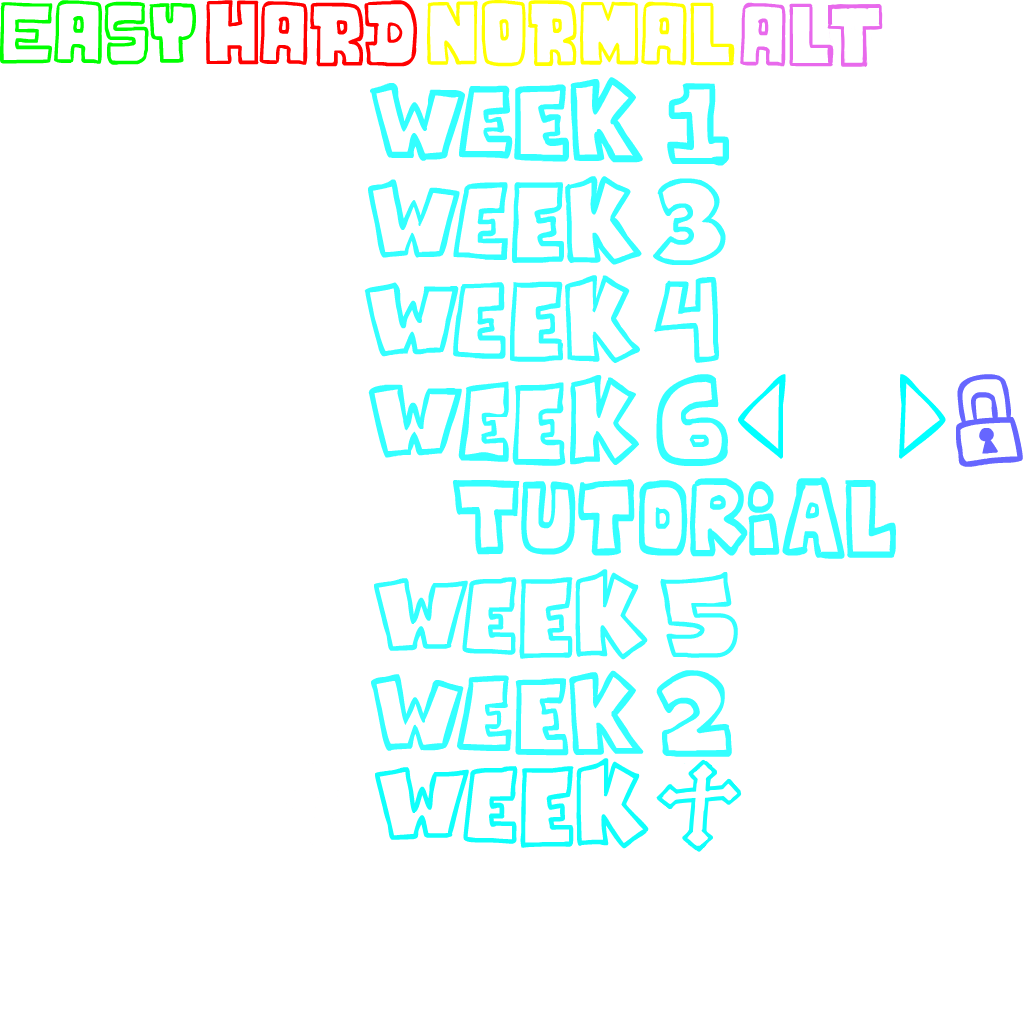 EASY HARD NORMAL ALT
WEEK 1
WEEK 3
WEEK 4
WEEK 6
TUTORiAL
WEEK 5
WEEK 2
WEEK